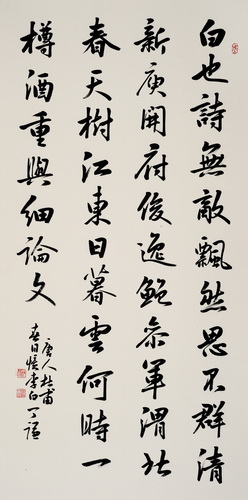 白也詩無敵飄然思不群清
新庾開府俊逸鮑参軍渭北
春天樹江東日暮雲何時一
樽酒重與細論文
唐人杜甫
春日憶李白丁